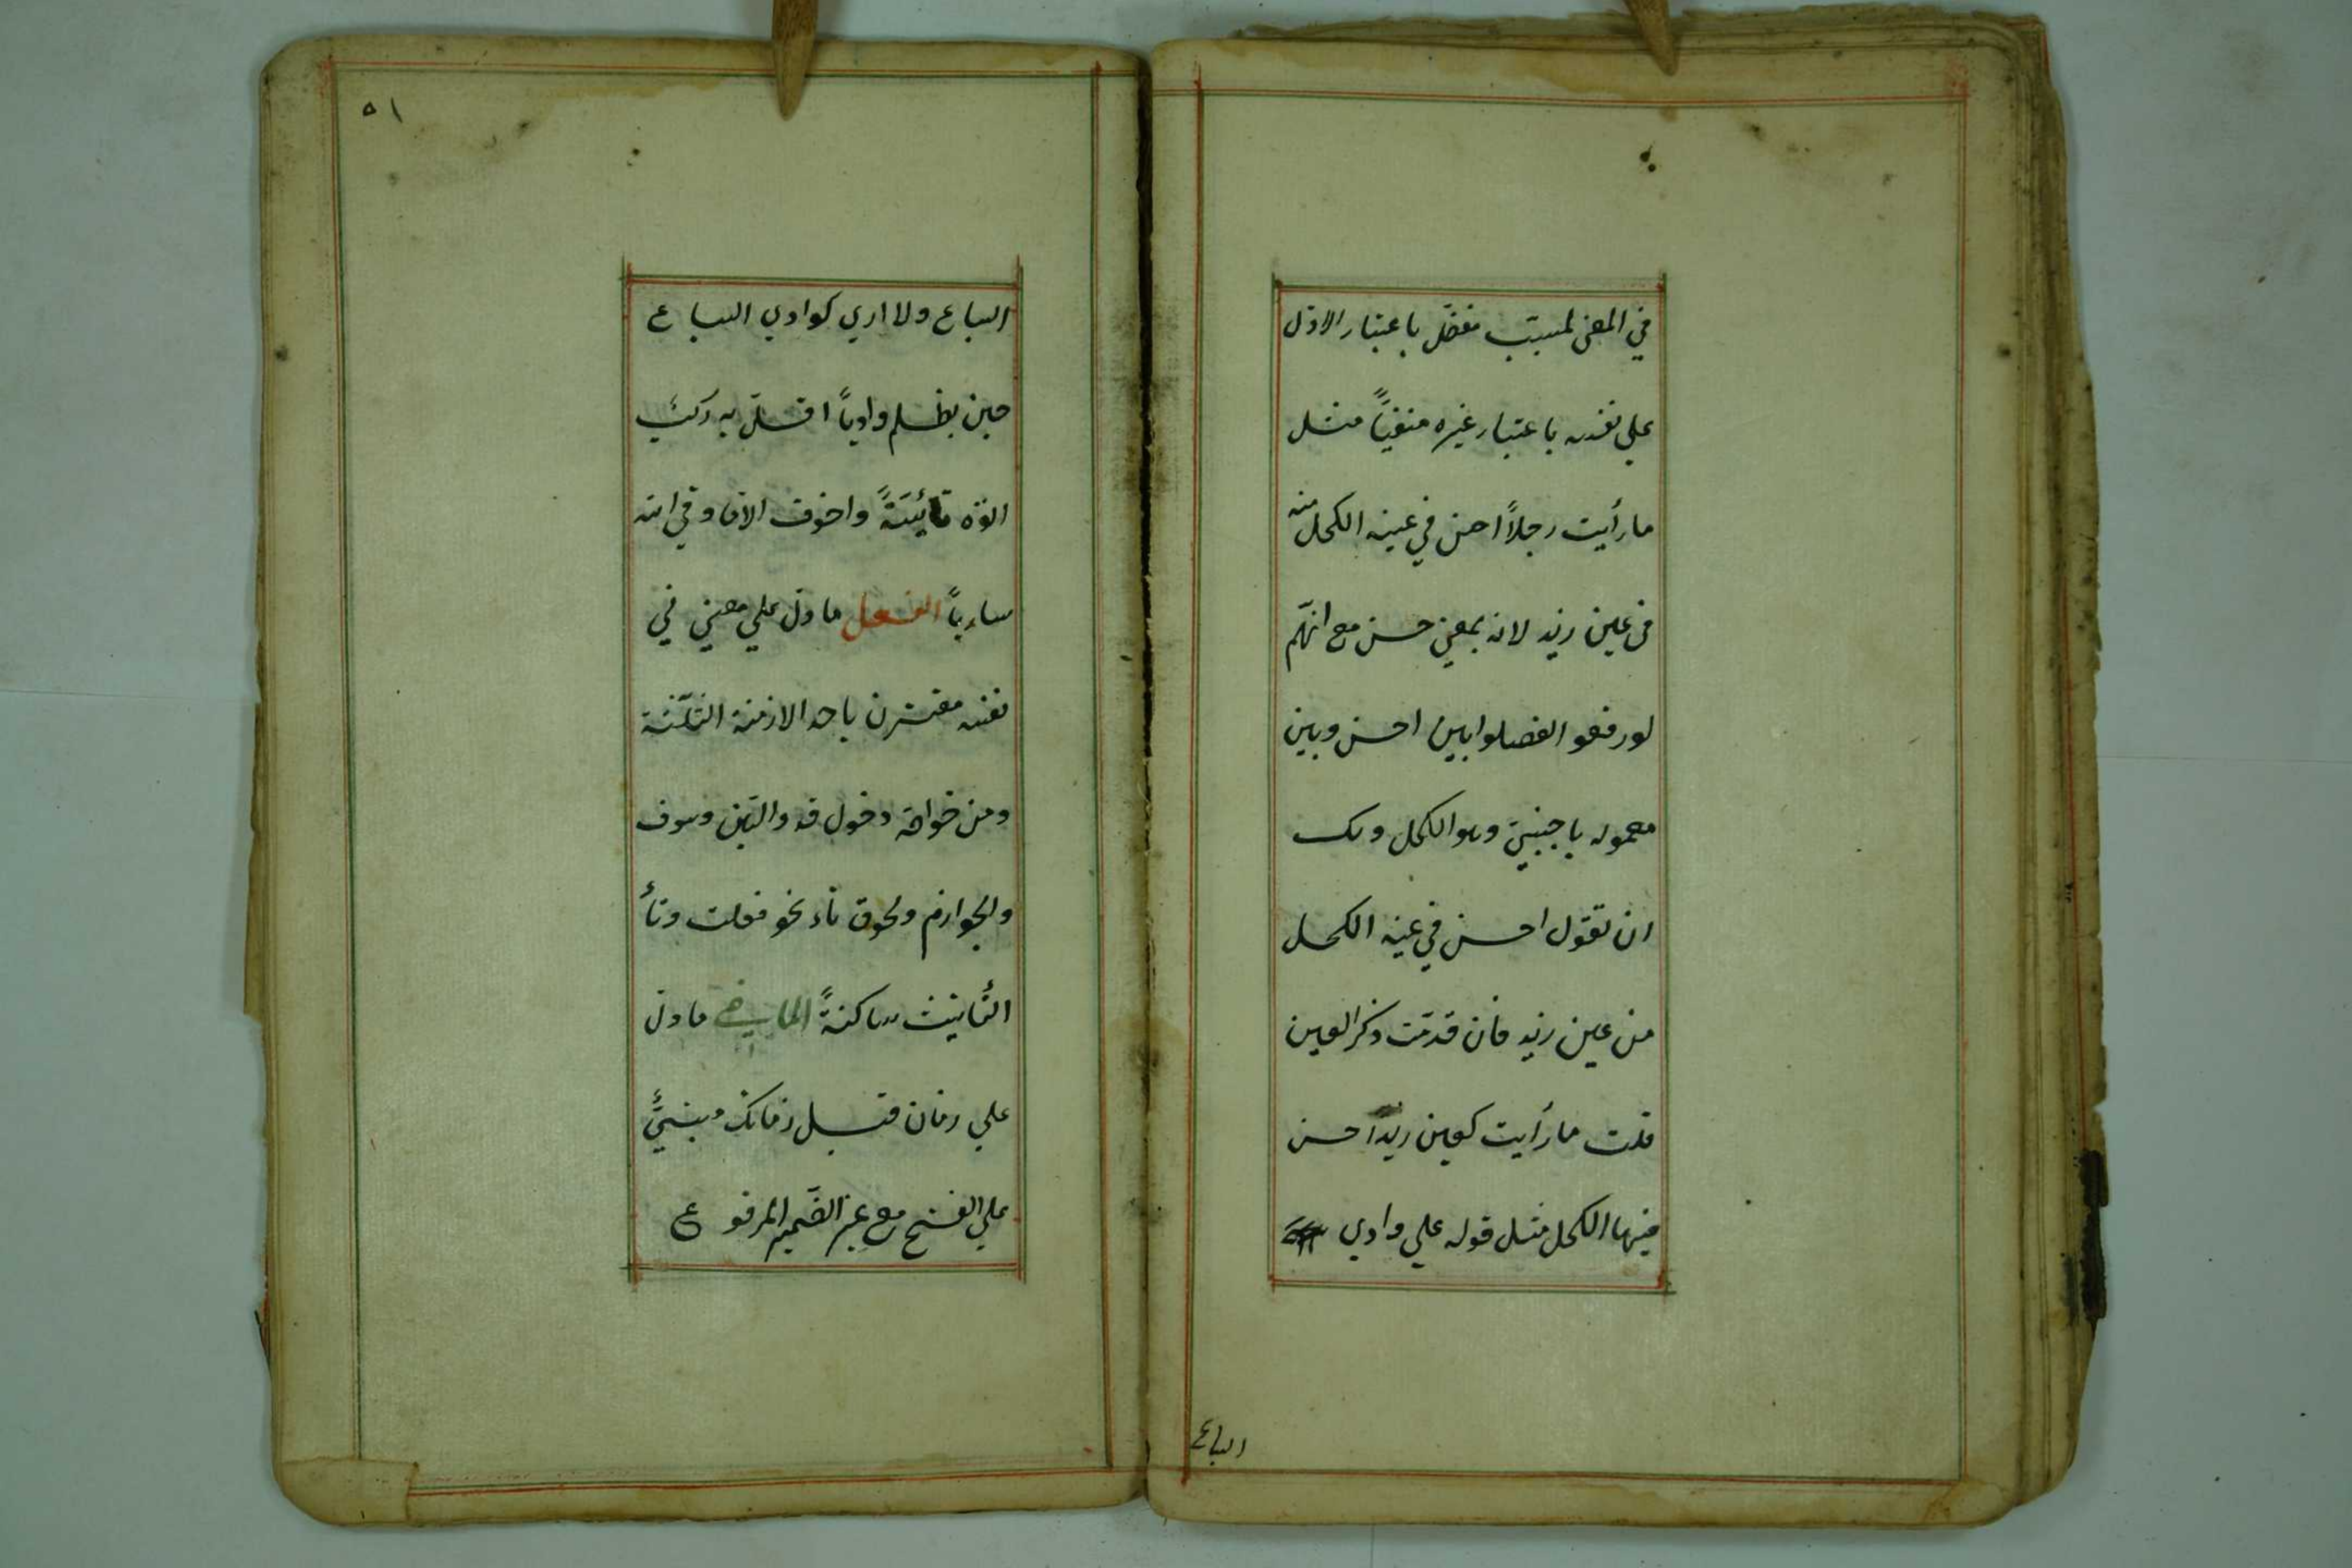 في المعنى لمسبّب مفضّل باعتبار الاوّل
علي نفسه باعتبار غيره منفيّاً مثل
ما رأيت رجلاً احسن في عينه الكحل منه
في عين زيد لانه بمعني حسن مع انّهم
لو رفعوا لفصلوا بين احسن وبين
معموله باجنبيّ وهو الكحل ولك
ان تقول احسن في عينه الكحل
من عين زيد فان قدمت ذكر العين
قلت ما رأيت كعين زيد احسن
فيها الكحل مثل قوله علي وادي
السباع
٥١
السباع ولا اري كوادي السباع
حين يظلم وادياً اقلّ به ركبٌ
اتوه تائيّةً واخوف الا ما وقي الله
سارياً الفعل ما دلّ علي معني في
نفسه مقترن باحد الازمنة الثلثة
ومن خواصّه دخول قد والسّين وسوف
والجوازم ولحوق تاء نحو فعلت وتأ
التّأنيث ساكنةً الماضي ما دلّ
علي زمان قبل زمانك مبنيٌّ
علي الفتح مع غير الضّمير المرفوع